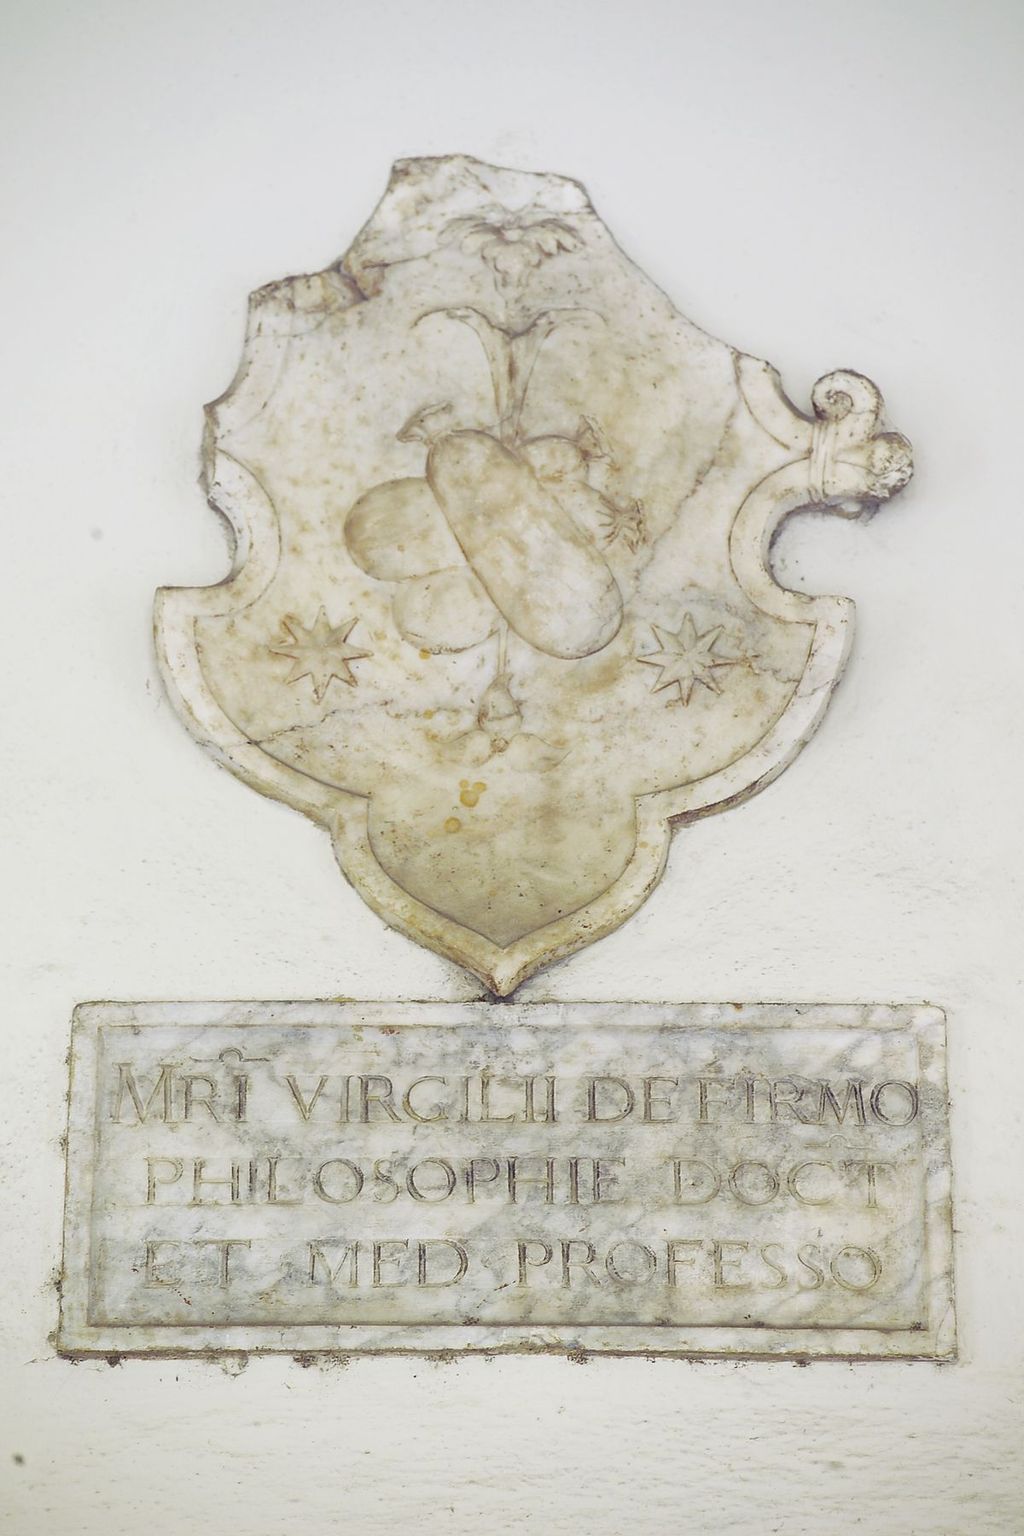 MRI VIRGILII DE FIRMO
PHILOSOPHIE DOCT
ET MED PROFESSO